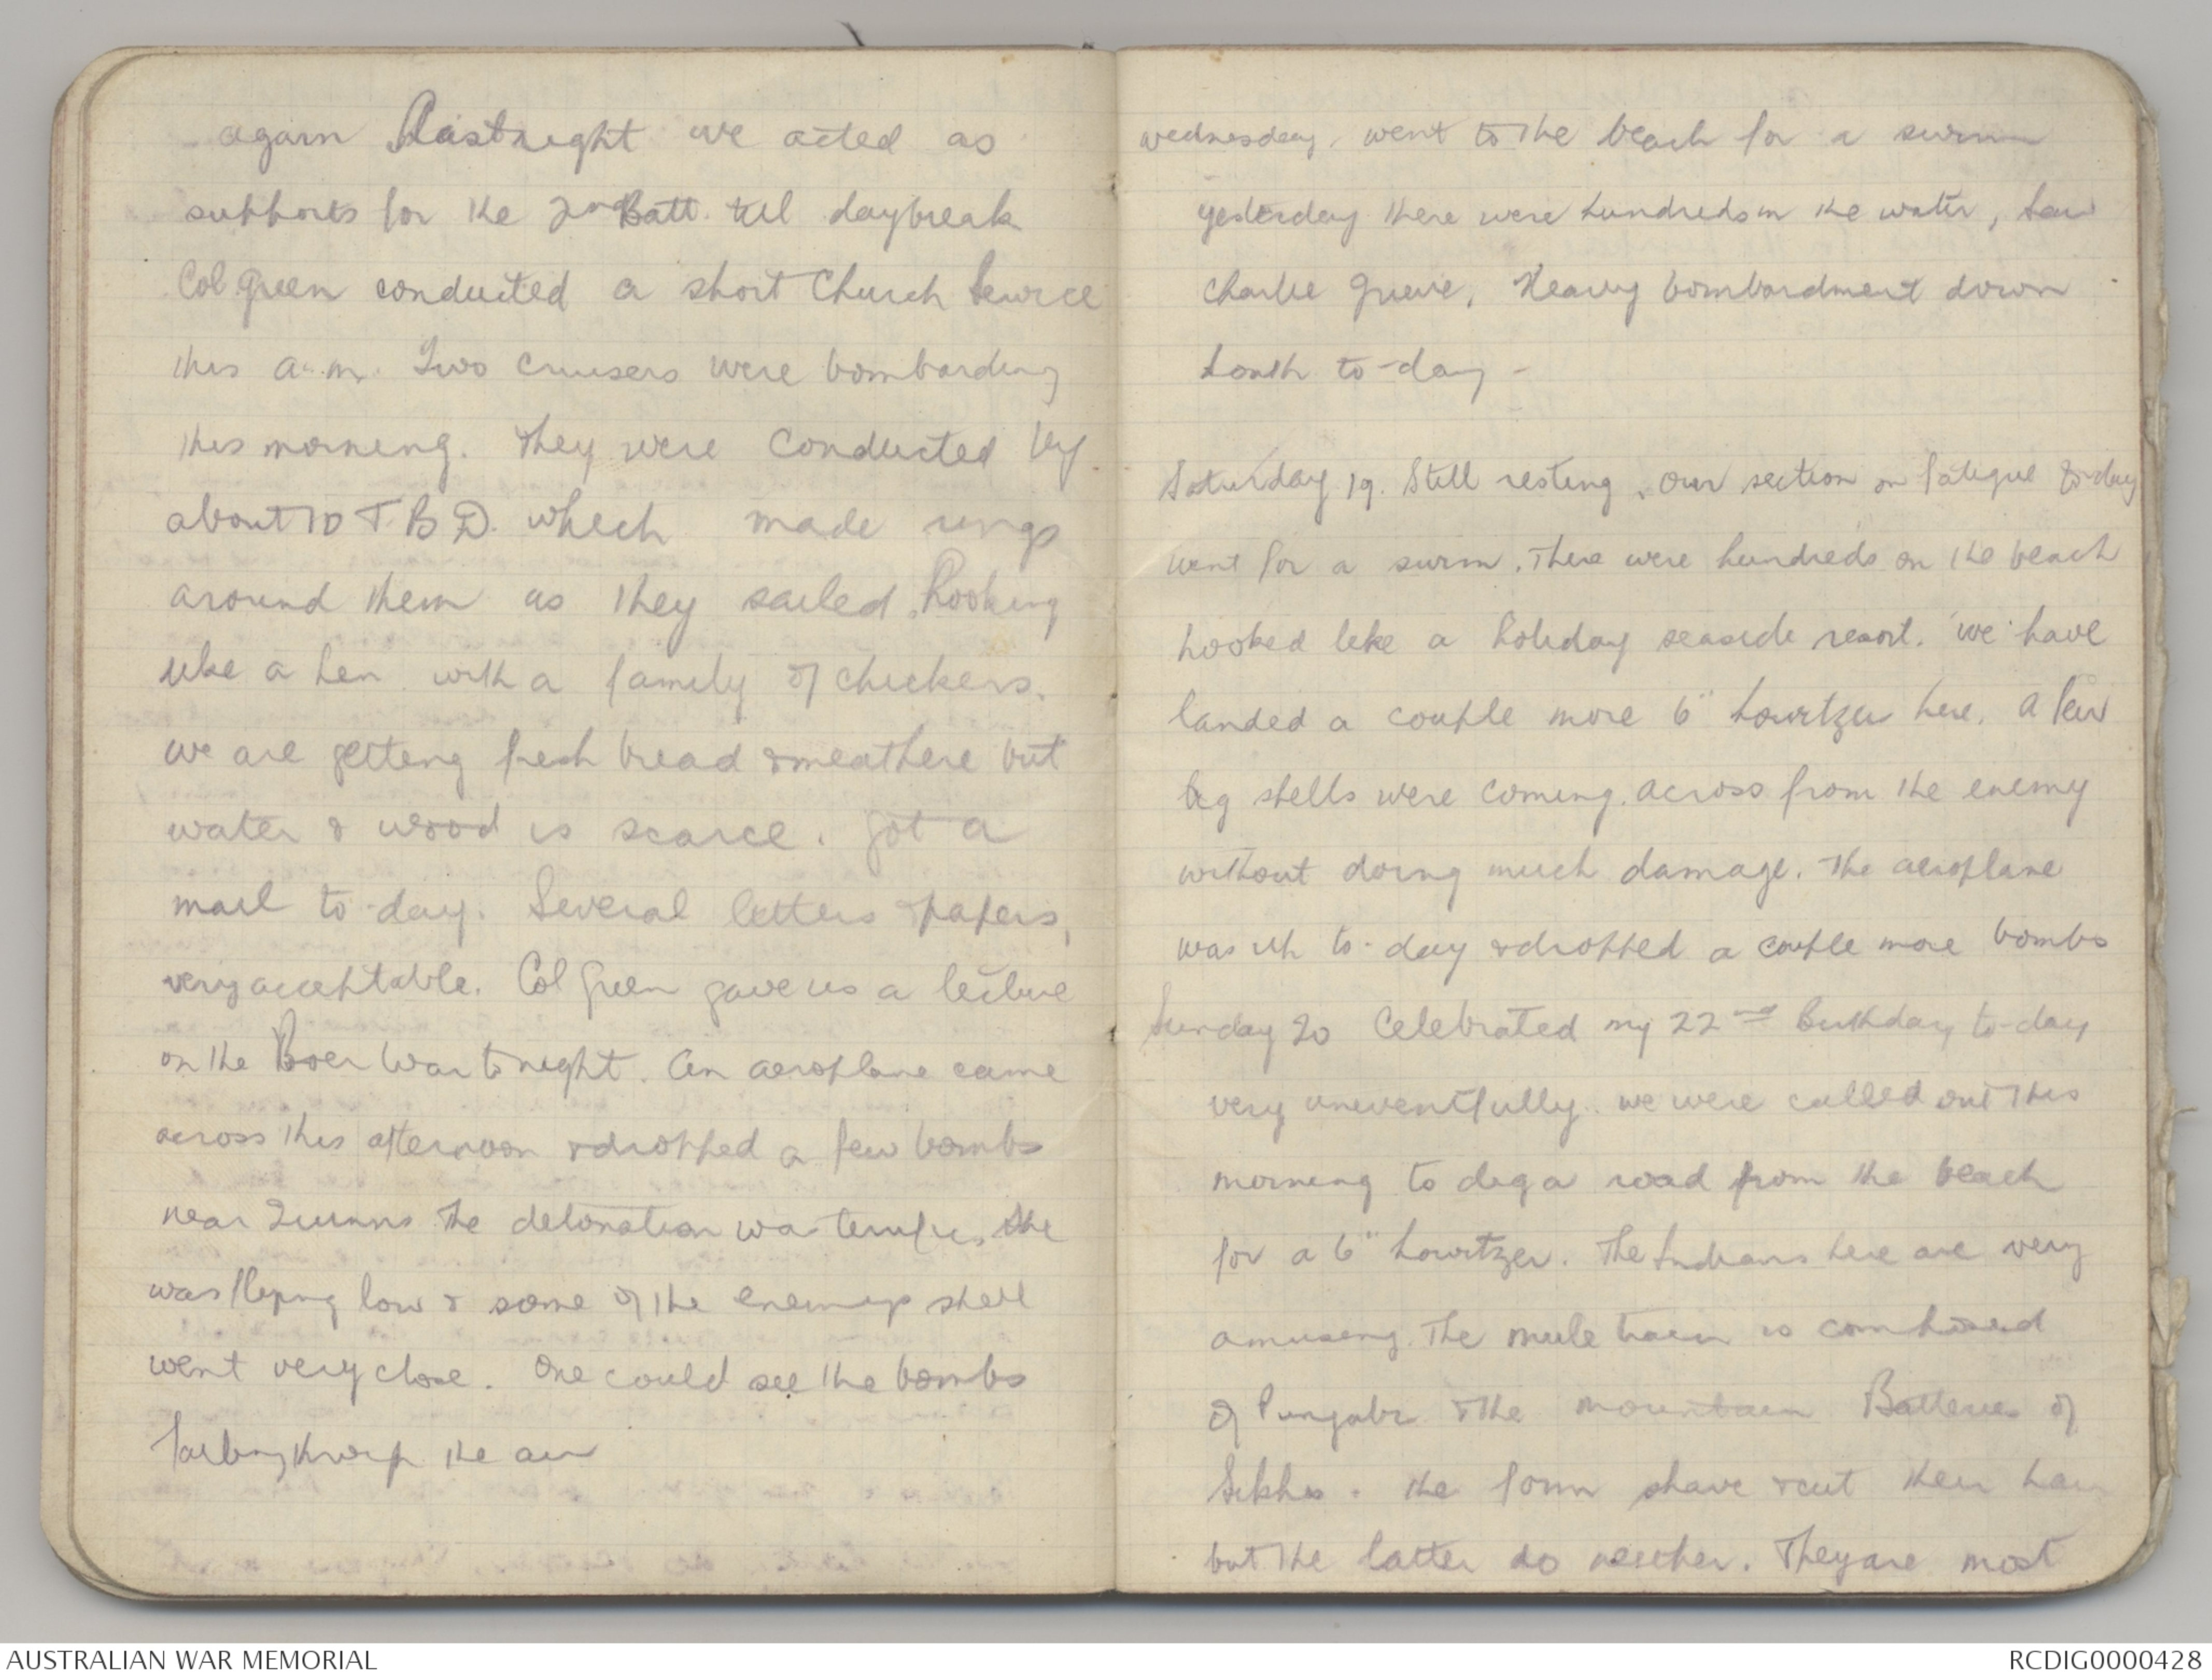 again Last night we acted as
supports for the 2nd Batt. till daybreak
Col Green conducted a short Church Service
this a.m. Two cruisers were bombarding
this morning. They were conducted by
about 10 T.B.D. which made rings
around them as they sailed, looking
like a hen with a family of chickens.
We are getting fresh bread & meat here but
water & wood is scarce. Got a
mail to-day. Several letters & papers,
very acceptable. Col Green gave us a lecture
on the Boer War tonight. An aeroplane came
across this afternoon & dropped a few bombs
near Quinns the detonation was terrific, she
was flying low & some of the enemys shell
went very close. One could see the bombs
falling through the air
Wednesday. went to the beach for a swim
yesterday there were hundreds in the water, saw
Charlie Grieve, Heavy bombardment down
South to-day -
Saturday 19. Still resting, our section on fatigue to-day
went for a swim. There were hundreds on the beach
looked like a holiday seaside resort. We have
landed a couple more 6" howitzer here. A few
big shells were coming across from the enemy
without doing much damage. The aeroplane
was up to-day & dropped a couple more bombs
Sunday 20 Celebrated my 22nd birthday to-day
very uneventfully. We were called out this
morning to dig a road from the beach
for a 6" howitzer. The Indians here are very
amusing. The mule train is composed
of Punjabi & the mountain Batteries of
Sikhs. The form shave & cut their hair
but the latter do neither. They are most
AUSTRALIAN WAR MEMORIAL
RCDIG0000428